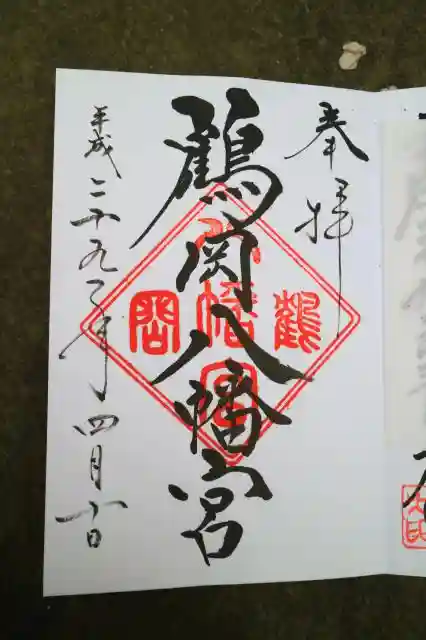 奉拝
鶴岡八幡宮
鶴
八幡宮
岡
平成二十九年四月十日